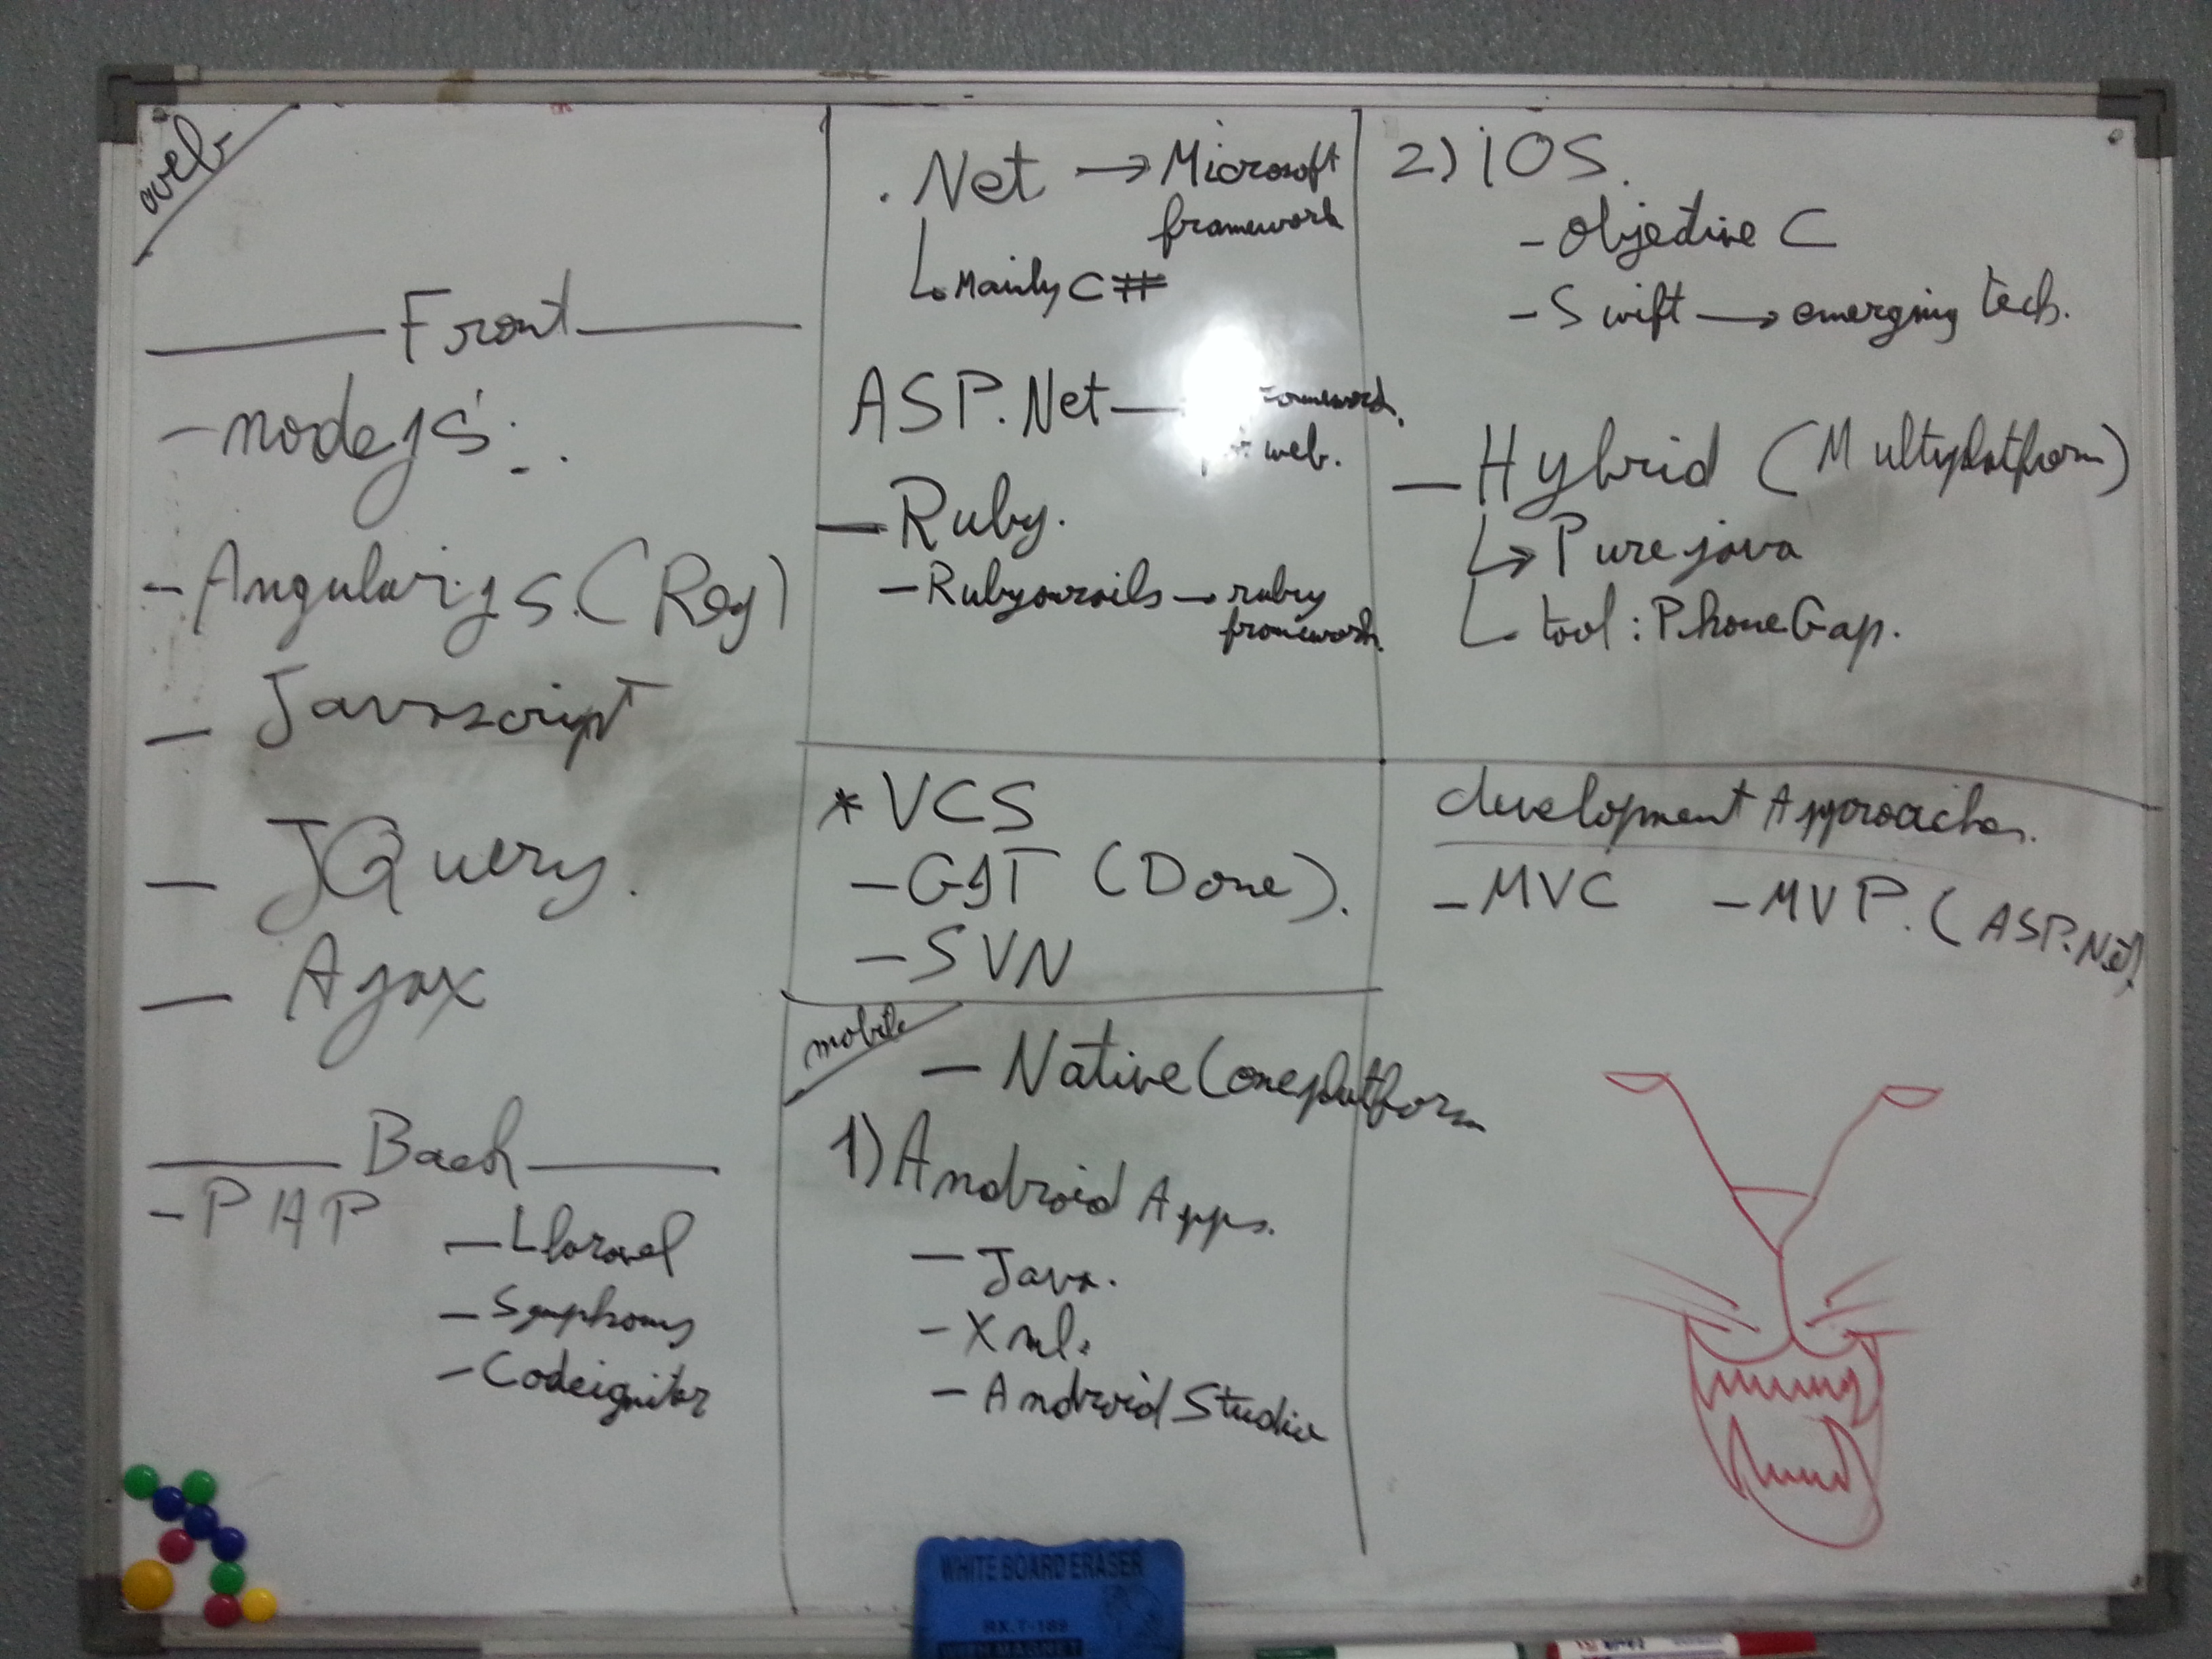 web
Front
- nodejs
- Angularjs. (Rey)
- Javascript
- JQuery.
- Ajax
Back
- PHP
- Llaravel
- Symphony
- Codeigniter
.Net → Microsoft
framework
Mainly C#
ASP.Net
web.
- Ruby.
- Rubyonrails → ruby
framework.
* VCS
- GIT (Done).
- SVN
mobile
- Native (oneplatform
1) Android Apps.
- Java.
- Xml.
- Android Studio
2) iOS.
- Objective C
- Swift → emerging tech.
- Hybrid (Multyplatform)
→ Pure java
tool : PhoneGap.
development Approaches.
- MVC - MVP. (ASP.Net)
WHITE BOARD ERASER
RX.T-189
WITH MAGNET